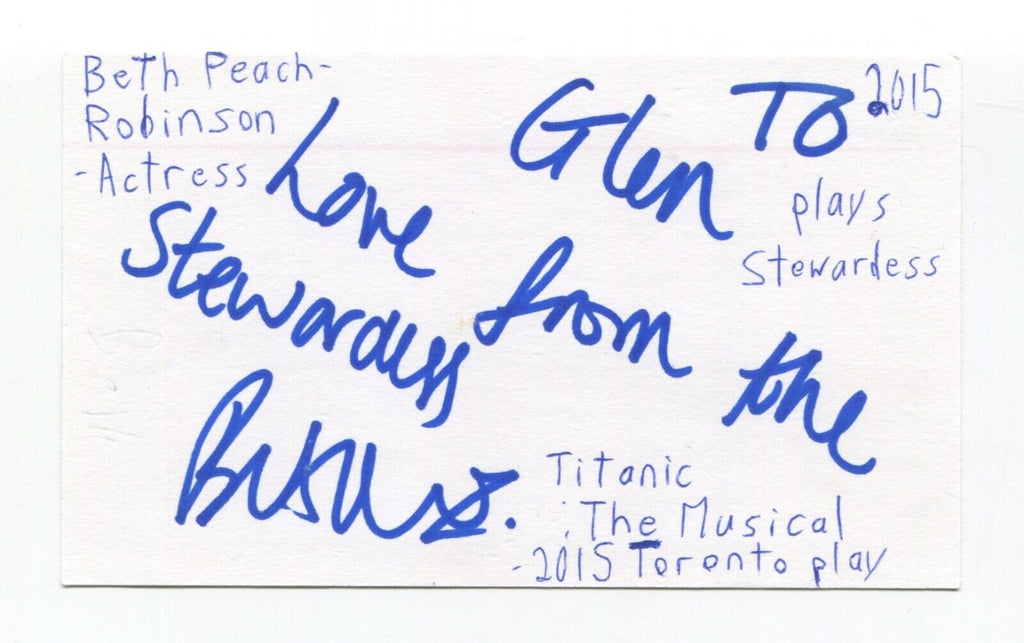 Beth Peach-
Robinson
-Actress
2015
plays
Stewardess
To
Glen
Love from the
Stewardess
Titanic
: The Musical
-2015 Toronto play